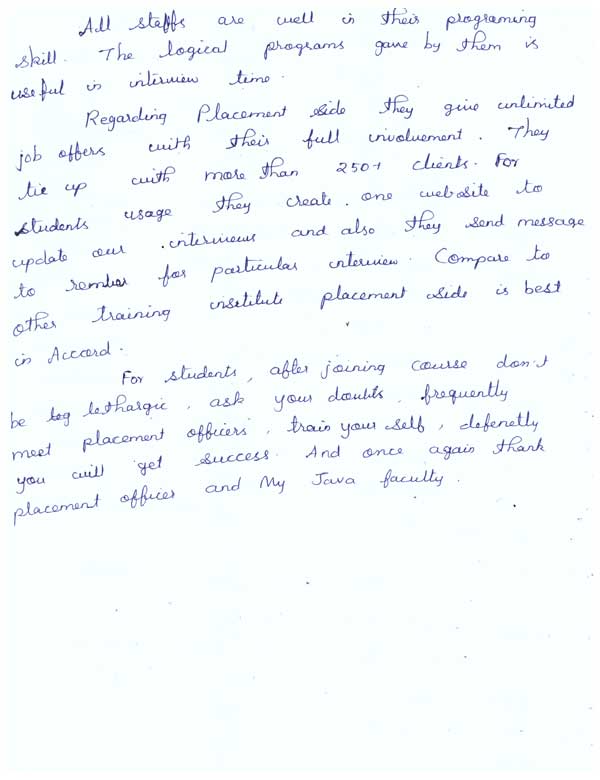 All staffs are well in their programing
skill. The logical programs gave by them is
useful in interview time.
Regarding Placement side they give unlimited
job offers with their full involvement. They
tie up with more than 250+ clients. For
students usage they create one website to
update our interviews and also they send message
to rember for particular interview. Compare to
other training insetitute placement side is best
in Accord.
For students, after joining course don't
be leg lethargic, ask your doubts, frequently
meet placement officers, train your self, defenetly
you will get success. And once again thank
placement officer and My Java faculty.